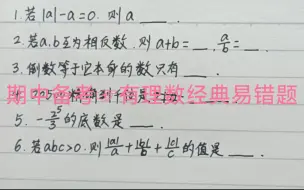 1.若|a|-a=0.则a ____.
2.若a.b互为相反数.则a+b=__.a/b=__.
3.倒数等于它本身的数只有 ____.
期中备考 有理数经典易错题
5. -2⁵/3的底数是____.
6.若abc>0.则|a|/a+|b|/b+|c|/c的值是____.